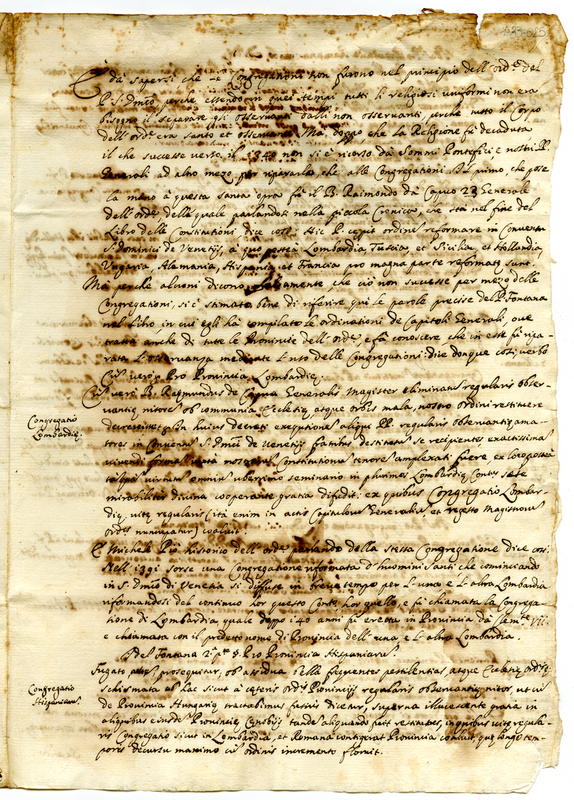 È da sapersi che le Congregationi non furono nel principio dell'ord.e del
P. S. Dom.co perche essendo in quei tempi tutti li religiosi uniformi non era
bisogno il separare gli osservanti dalli non osservanti, perche tutto il Corpo
dell'ord.e era santo et osservante. Ma doppo che la Religione fù decaduta
il che successe verso il 1340 non si è ricorso da Sommi Pontefici e nostri P.
Generali ad altro mezo per ripararla che alle Congregationi. Il primo, che pose
la mano à questa santa opra fù il B. Raimondo da Capua 23 Generale
dell'ord.e della quale parlando nella piccola Cronica, che stà nel fine del
libro delle Constitutioni dice così. Hic P. cepit ordinẽ reformare in Conventu
S. Dominici de Venetijs, à quo postea Lombardia, Tuscia et Sicilia, et Hollandia,
Ungaria, Alemania, Hispania, et Francia pro magna parte reformatę sunt.
Ma perche alcuni dicono che ciò non successe per mezo delle
Congregationi, si è stimato bene di riferire qui le parole precise del P. Fontana
nel libro, in cui egli hà compilato le ordinationi de Capitoli Generali, ove
tratta anche di tutte le Provincie dell'ord.e, e fà conoscere che in este fù ripa-
rata l'osservanza mediante l'uso delle Congregationi: dice donque così verbo
Pro Provincia Lombardię.
Cũ verò B. Raymundus de Capua Generalis Magister eliminatũ regularis obser-
vantię nitorẽ ob communia Ecclesię, atque orbis mala, nostro ordini restituere
decrevisset, in huius decreti executione aliqui PP. regularis observantię ama-
tores in Conventu S. Dom.ci de Venetijs fratribus destituto se recipientes exactissima
vivendi forma iuxta nostrarũ Constitutionũ tenorẽ amplexati fuere ex loco postea
virtutũ omniũ uberrimo seminario in plurimos Lombardię Conv.tus se se
mirabiliter divina cooperante gratia difudit: ex quibus Congregatio Lombar-
dię, vitę regularis (ità enim in actis Capitulorũ Generaliũ, et regesto Magistrorũ
Ord.is nuncupatur) coaluit.
E Michele Pio historico dell'ord.e parlando della stessa Congregatione dice così.
Nell'1391 sorse una Congregatione riformata d'huomini santi che cominciando
in S. Dom.co di Venetia si diffuse in breve tempo per l'una e l'altra Lombardia
riformandosi del continuo hor questo Conv.to hor quello, e fù chiamata la Congrega-
tione di Lombardia quale doppo 140 anni fù eretta in Provincia da Clem.te VII.
e chiamata con il predetto nome di Provincia dell'una, e l'altra Lombardia.
P. del Fontana 2.a p.te §. Pro Provincia Hispaniarũ.
Fugato prosequitur, ob assidua bella frequentes pestilentias, atque Ecclesię
schismata ab hac sicut à cęteris Ord.is Provincijs regularis observantię nitor, ut cũ
de Provincia Hungarię tractabimus fusius dicetur, superna illucescente gratia in
aliquibus eiusdẽ Provincię Cęnobijs tandẽ aliquando fuit restitutus, in quibus vitę regula-
ris Congregatio sicut in Lombardia, et Romana contigerat Provincia coaluit, quę longo tem-
poris decursu maximo cũ ordinis incremento floruit.
Congregatio
Lombardię.
Congregatio
Hispaniarũ.